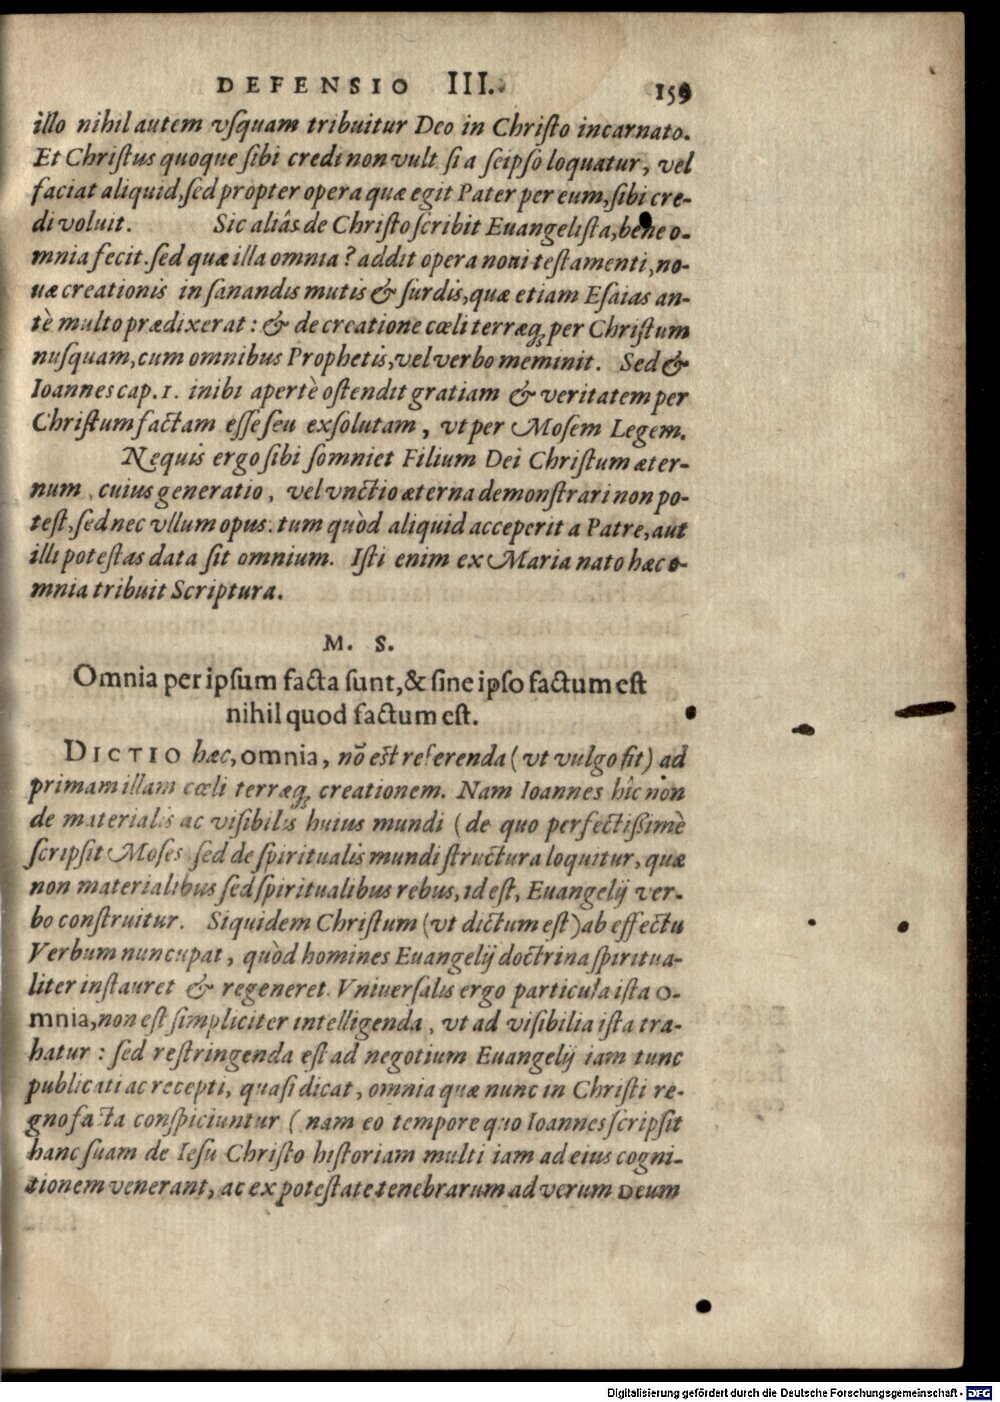 DEFENSIO III. 159
illo nihil autem vſquam tribuitur Deo in Chriſto incarnato.
Et Chriſtus quoque ſibi credi non vult ſi a ſeipſo loquatur, vel
faciat aliquid, ſed propter opera quæ egit Pater per eum, ſibi cre-
di voluit. Sic aliâs de Chriſto ſcribit Euangeliſta, bene o-
mnia fecit. ſed quæ illa omnia? addit opera noui teſtamenti, no-
uæ creationis in ſanandis mutis & ſurdis, quæ etiam Eſaias an-
tè multo prædixerat: & de creatione cœli terræq́; per Chriſtum
nuſquam, cum omnibus Prophetis, vel verbo meminit. Sed &
Ioannes cap. 1. inibi apertè oſtendit gratiam & veritatem per
Chriſtum factam eſſe ſeu exſolutam, vt per Moſem Legem.
Nequis ergo ſibi ſomniet Filium Dei Chriſtum æter-
num, cuius generatio, vel vnctio æterna demonſtrari non po-
teſt, ſed nec vllum opus: tum quòd aliquid acceperit a Patre, aut
illi poteſtas data ſit omnium. Iſti enim ex Maria nato hæc o-
mnia tribuit Scriptura.
M. S.
Omnia per ipſum facta ſunt, & ſine ipſo factum eſt
nihil quod factum eſt.
DICTIO hæc, omnia, nō eſt referenda (vt vulgo fit) ad
primam illam cœli terræq́; creationem. Nam Ioannes hîc non
de materialis ac viſibilis huius mundi (de quo perfectiſſimè
ſcripſit Moſes ſed de ſpiritualis mundi ſtructura loquitur, quæ
non materialibus ſed ſpiritualibus rebus, id eſt, Euangelij ver-
bo conſtruitur. Siquidem Chriſtum (vt dictum eſt) ab effectu
Verbum nuncupat, quòd homines Euangelij doctrina ſpiritua-
liter inſtauret & regeneret. Vniuerſalis ergo particula iſta o-
mnia, non eſt ſimpliciter intelligenda, vt ad viſibilia iſta tra-
hatur: ſed reſtringenda eſt ad negotium Euangelij iam tunc
publicati ac recepti, quaſi dicat, omnia quæ nunc in Chriſti re-
gno facta conſpiciuntur (nam eo tempore quo Ioannes ſcripſit
hanc ſuam de Ieſu Chriſto hiſtoriam multi iam ad eius cogni-
tionem venerant, ac ex poteſtate tenebrarum ad verum DEUM
Digitalisierung gefördert durch die Deutsche Forschungsgemeinschaft - DFG